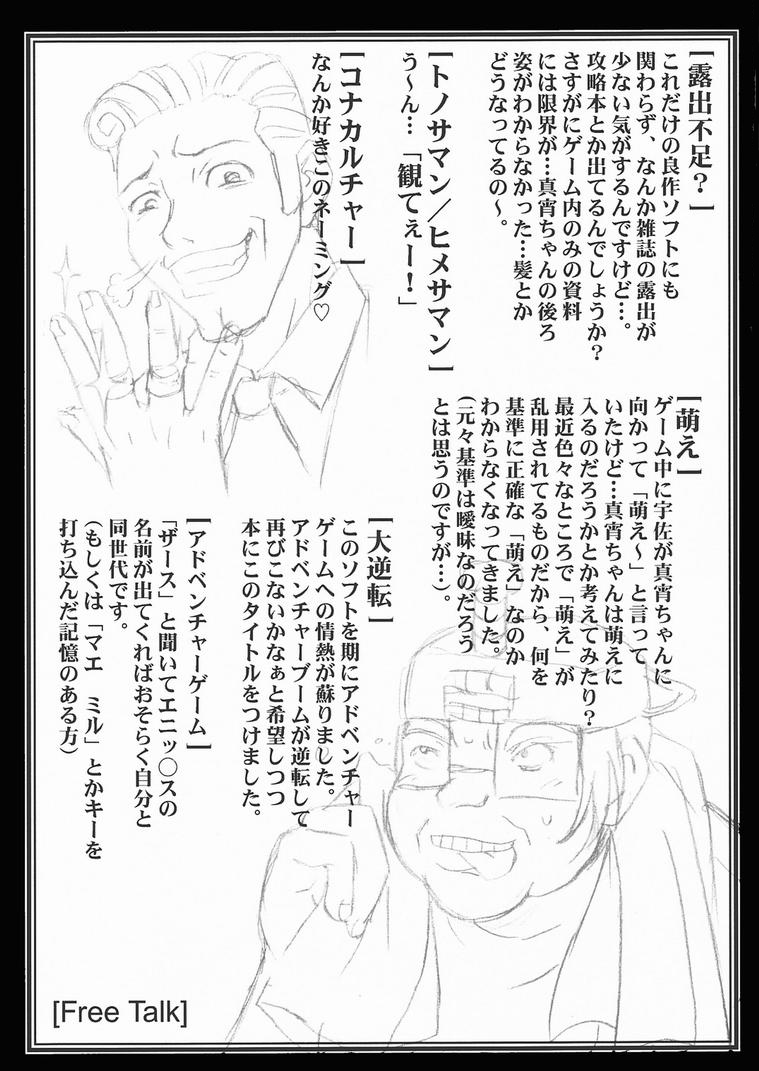 【露出不足？】
これだけの良作ソフトにも
関わらず、なんか雑誌の露出が
少ない気がするんですけど…。
攻略本とか出てるんでしょうか？
さすがにゲーム内のみの資料
には限界が…真宵ちゃんの後ろ
姿がわからなかった…髪とか
どうなってるの～。
【トノサマン／ヒメサマン】
う～ん…「観てぇー！」
【コナカルチャー】
なんか好きこのネーミング♡
【萌え】
ゲーム中に宇佐が真宵ちゃんに
向かって「萌え～」と言って
いたけど…真宵ちゃんは萌えに
入るのだろうかとか考えてみたり？
最近色々なところで「萌え」が
乱用されてるものだから、何を
基準に正確な「萌え」なのか
わからなくなってきました。
（元々基準は曖昧なのだろう
とは思うのですが…）。
【大逆転】
このソフトを期にアドベンチャー
ゲームへの情熱が蘇りました。
アドベンチャーブームが逆転して
再びこないかなぁと希望しつつ
本にこのタイトルをつけました。
【アドベンチャーゲーム】
「ザース」と聞いてエニッ○スの
名前が出てくればおそらく自分と
同世代です。
（もしくは「マエ　ミル」とかキーを
打ち込んだ記憶のある方）
[Free Talk]